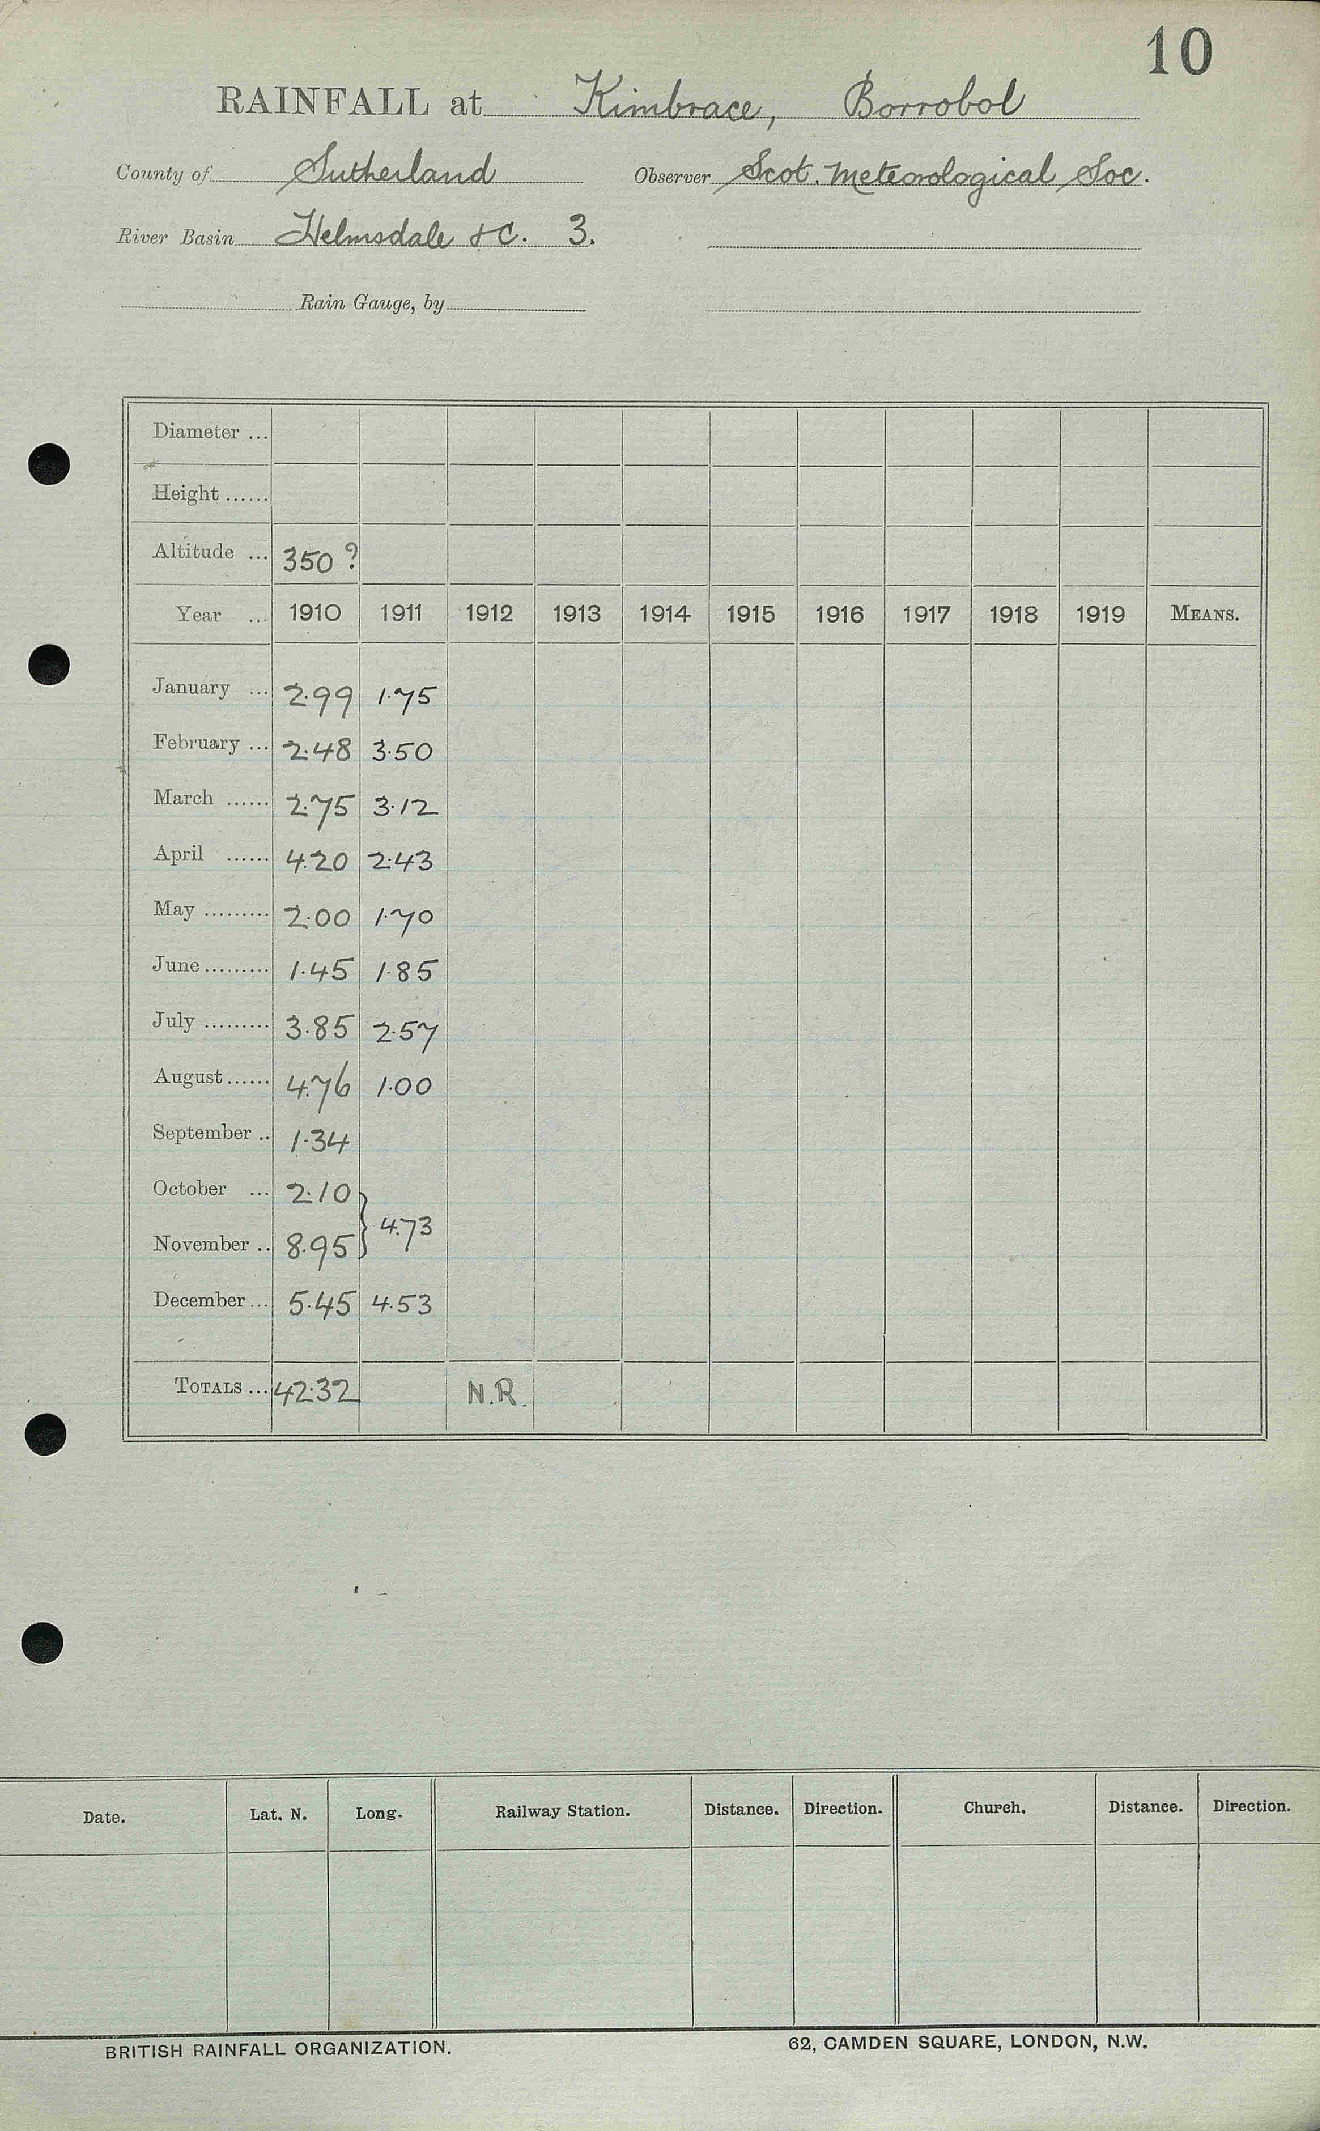 10
RAINFALL at Kimbrace, Borrobol
County of Sutherland Observer Scot. Meteorological Soc.
River Basin Helmsdale &C. 3.
Rain Gauge, by
Diameter ...
Height ......
Altitude ... 350 ?
Year ... 1910 1911 1912 1913 1914 1915 1916 1917 1918 1919 MEANS.
January ... 2.99 1.75
February ... 2.48 3.50
March ...... 2.75 3.12
April ...... 4.20 2.43
May ......... 2.00 1.70
June ......... 1.45 1.85
July ......... 3.85 2.57
August ...... 4.76 1.00
September .. 1.34
October ... 2.10
} 4.73
November .. 8.95
December ... 5.45 4.53
TOTALS ... 42.32 N.R.
Date. Lat. N. Long. Railway Station. Distance. Direction. Church. Distance. Direction.
BRITISH RAINFALL ORGANIZATION. 62, CAMDEN SQUARE, LONDON, N.W.